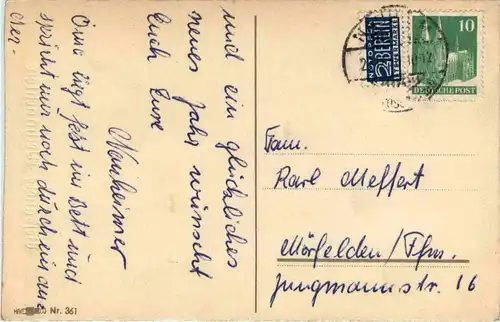 und ein glückliches
neues Jahr wünscht
Euch Eure
Nauheimer
Oma liegt fest im Bett und
spricht nur noch durch ein
NOTOPFER
2 BERLIN
STEUERMARKE
10
DEUTSCHE POST
Fam.
Karl Meffert
Mörfelden/Ffm.
Jungmannstr. 16
Nr. 361